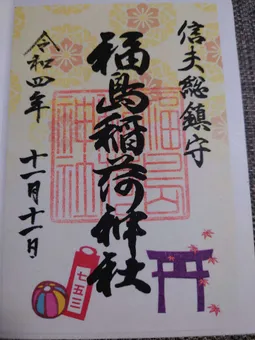 信夫総鎮守
福島稲荷神社
令和四年 十一月十一日
七五三